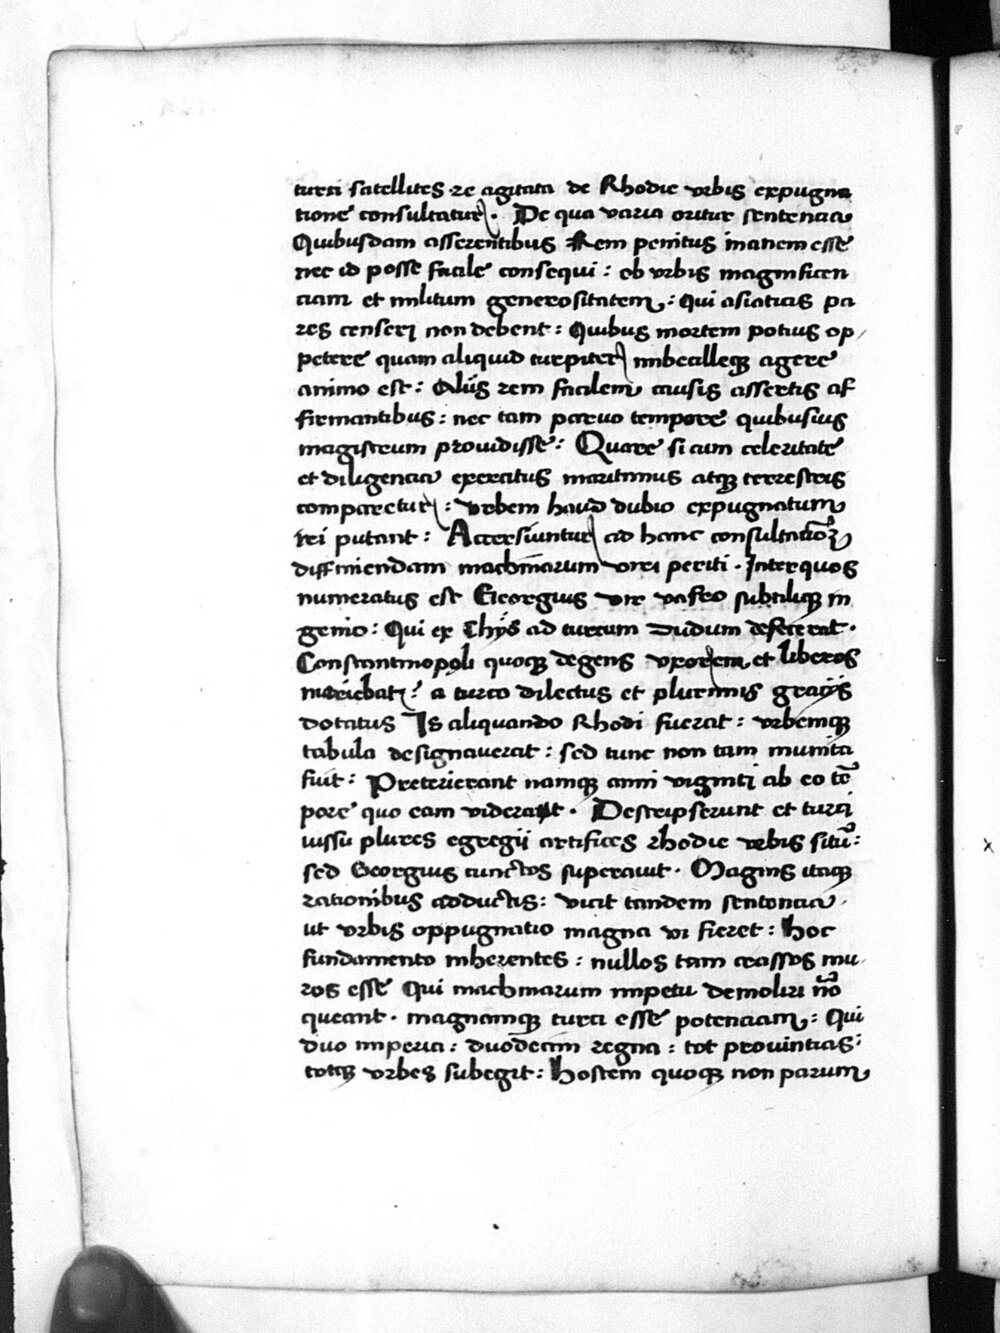 turci satellites. re agitata de Rhodie vrbis expugna
tione consultatur. De qua varia oritur sentencia
Quibusdam asserentibus Rem penitus inanem esse
nec id posse facile consequi : ob vrbis magnificen
ciam et militum generositatem : qui asiaticis pa
res censeri non debent : Quibus mortem potius op
petere quam aliquid turpiter imbecalleque agere
animo est : Alijs rem facilem causis assertis af
firmantibus : nec tam paruo tempore quibusuis
magistrum prouidisse : Quare si cum celeritate
et diligencia exercitus maritimus atque terrestris
comparetur : vrbem haud dubio expugnatum
iri putant : Accersiuntur ad hanc consultacionem
diffiniendam machinarum viri periti . Inter quos
numeratus est Georgius vir vafro subtilique in
genio : Qui ex Chijs ad turcum dudum defecerat .
Constantinopoli quoque degens vxorem et liberos
nutriebat : a turco dilectus et plurimis gracijs
dotatus Is aliquando Rhodi fuerat : vrbemque
tabula designauerat : sed tunc non tam munita
fuit : Preterierant namque anni viginti ab eo tẽ
pore quo eam viderat . Descripserunt et turci
iussu plures egregii artifices rhodie vrbis sitũ :
sed Georgius cunctos superauit . Magnis itaque
rationibus adductis : vicit tandem sentencia
ut vrbis oppugnatio magna vi fieret : hoc
fundamento inherentes : nullos tam crassos mu
ros esse Qui machinarum impetu demoliri nõ
queant . magnamque turci esse potenciam : Qui
duo imperia : duodecim regna : tot prouintias :
totque vrbes subegit : hostem quoque non parum